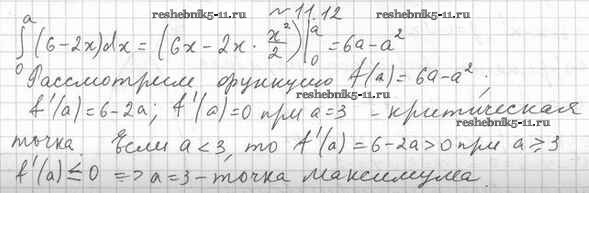 reshebnik5-11.ru № 11.12 reshebnik5-11.ru
∫₀ᵃ (6-2x)dx = (6x - 2x · x²/2)|₀ᵃ = 6a - a²
Рассмотрим функцию f(a) = 6a - a²;
reshebnik5-11.ru
f'(a) = 6-2a; f'(a) = 0 при a = 3 - критическая
reshebnik5-11.ru
точка. Если a < 3, то f'(a) = 6-2a > 0 при a ⩾ 3
f'(a) ≤ 0 => a = 3 - точка максимума.